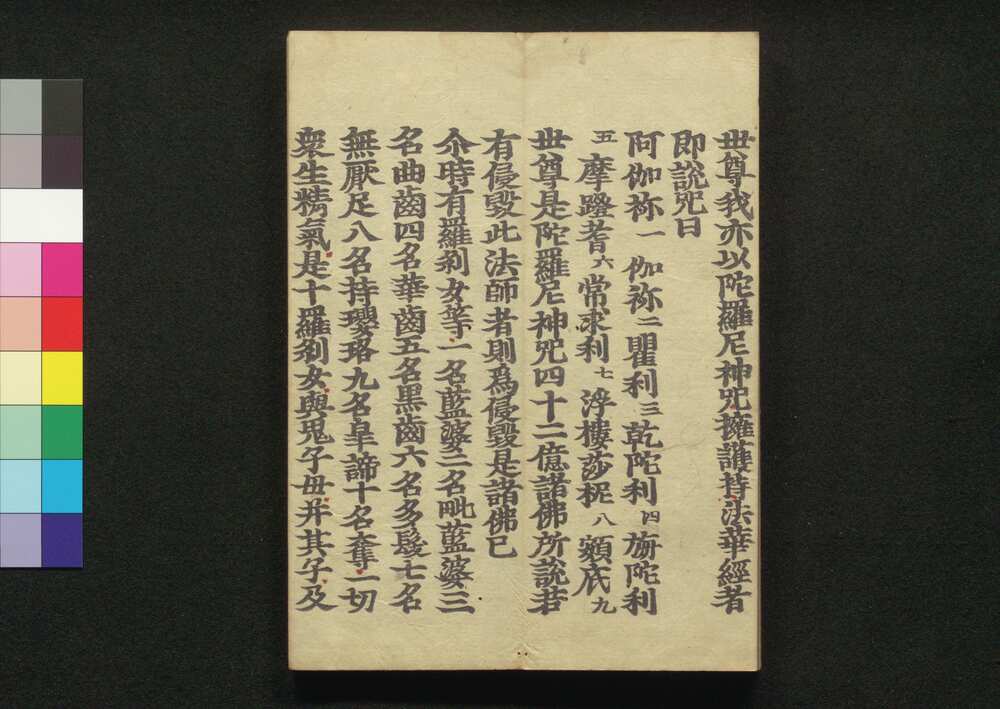 世尊我亦以陀羅尼神呪擁護持法華經者
即説咒曰
阿伽祢一 伽祢二瞿利三乾陀利四旃陀利
五摩蹬耆六常求利七浮樓莎柅八頞底九
世尊是陀羅尼神咒四十二億諸佛所説若
有侵毀此法師者則爲侵毀是諸佛已
尒時有羅刹女等一名藍婆二名毗藍婆三
名曲齒四名華齒五名黒齒六名多髮七名
無厭足八名持瓔珞九名皐諦十名奪一切
衆生精氣是十羅刹女與鬼子母并其子及